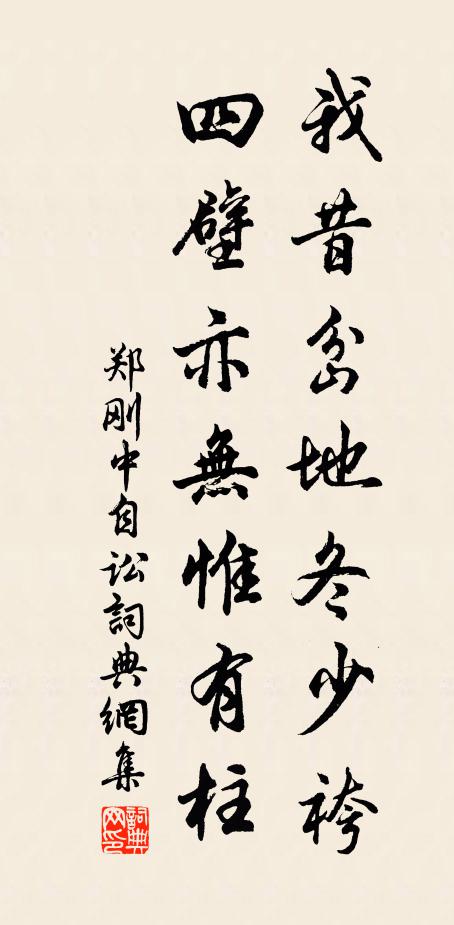 我昔岔地冬少袴
四壁亦無惟有柱
郑刚中自讼詞典網集
詞典網印